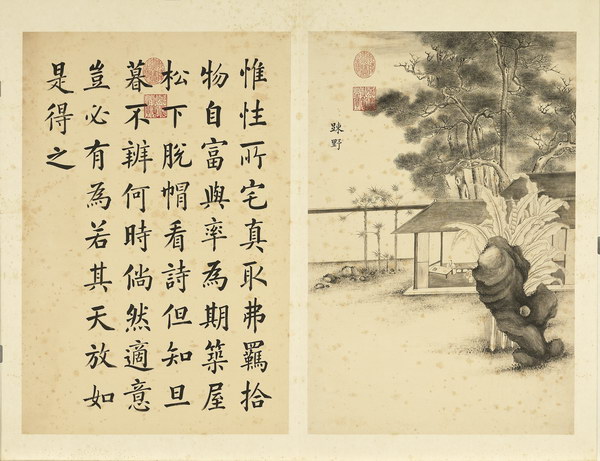 踈野
惟性所宅真取弗羈拾
物自富與率為期築屋
松下脫帽看詩但知旦
暮不辨何時倘然適意
豈必有為若其天放如
是得之